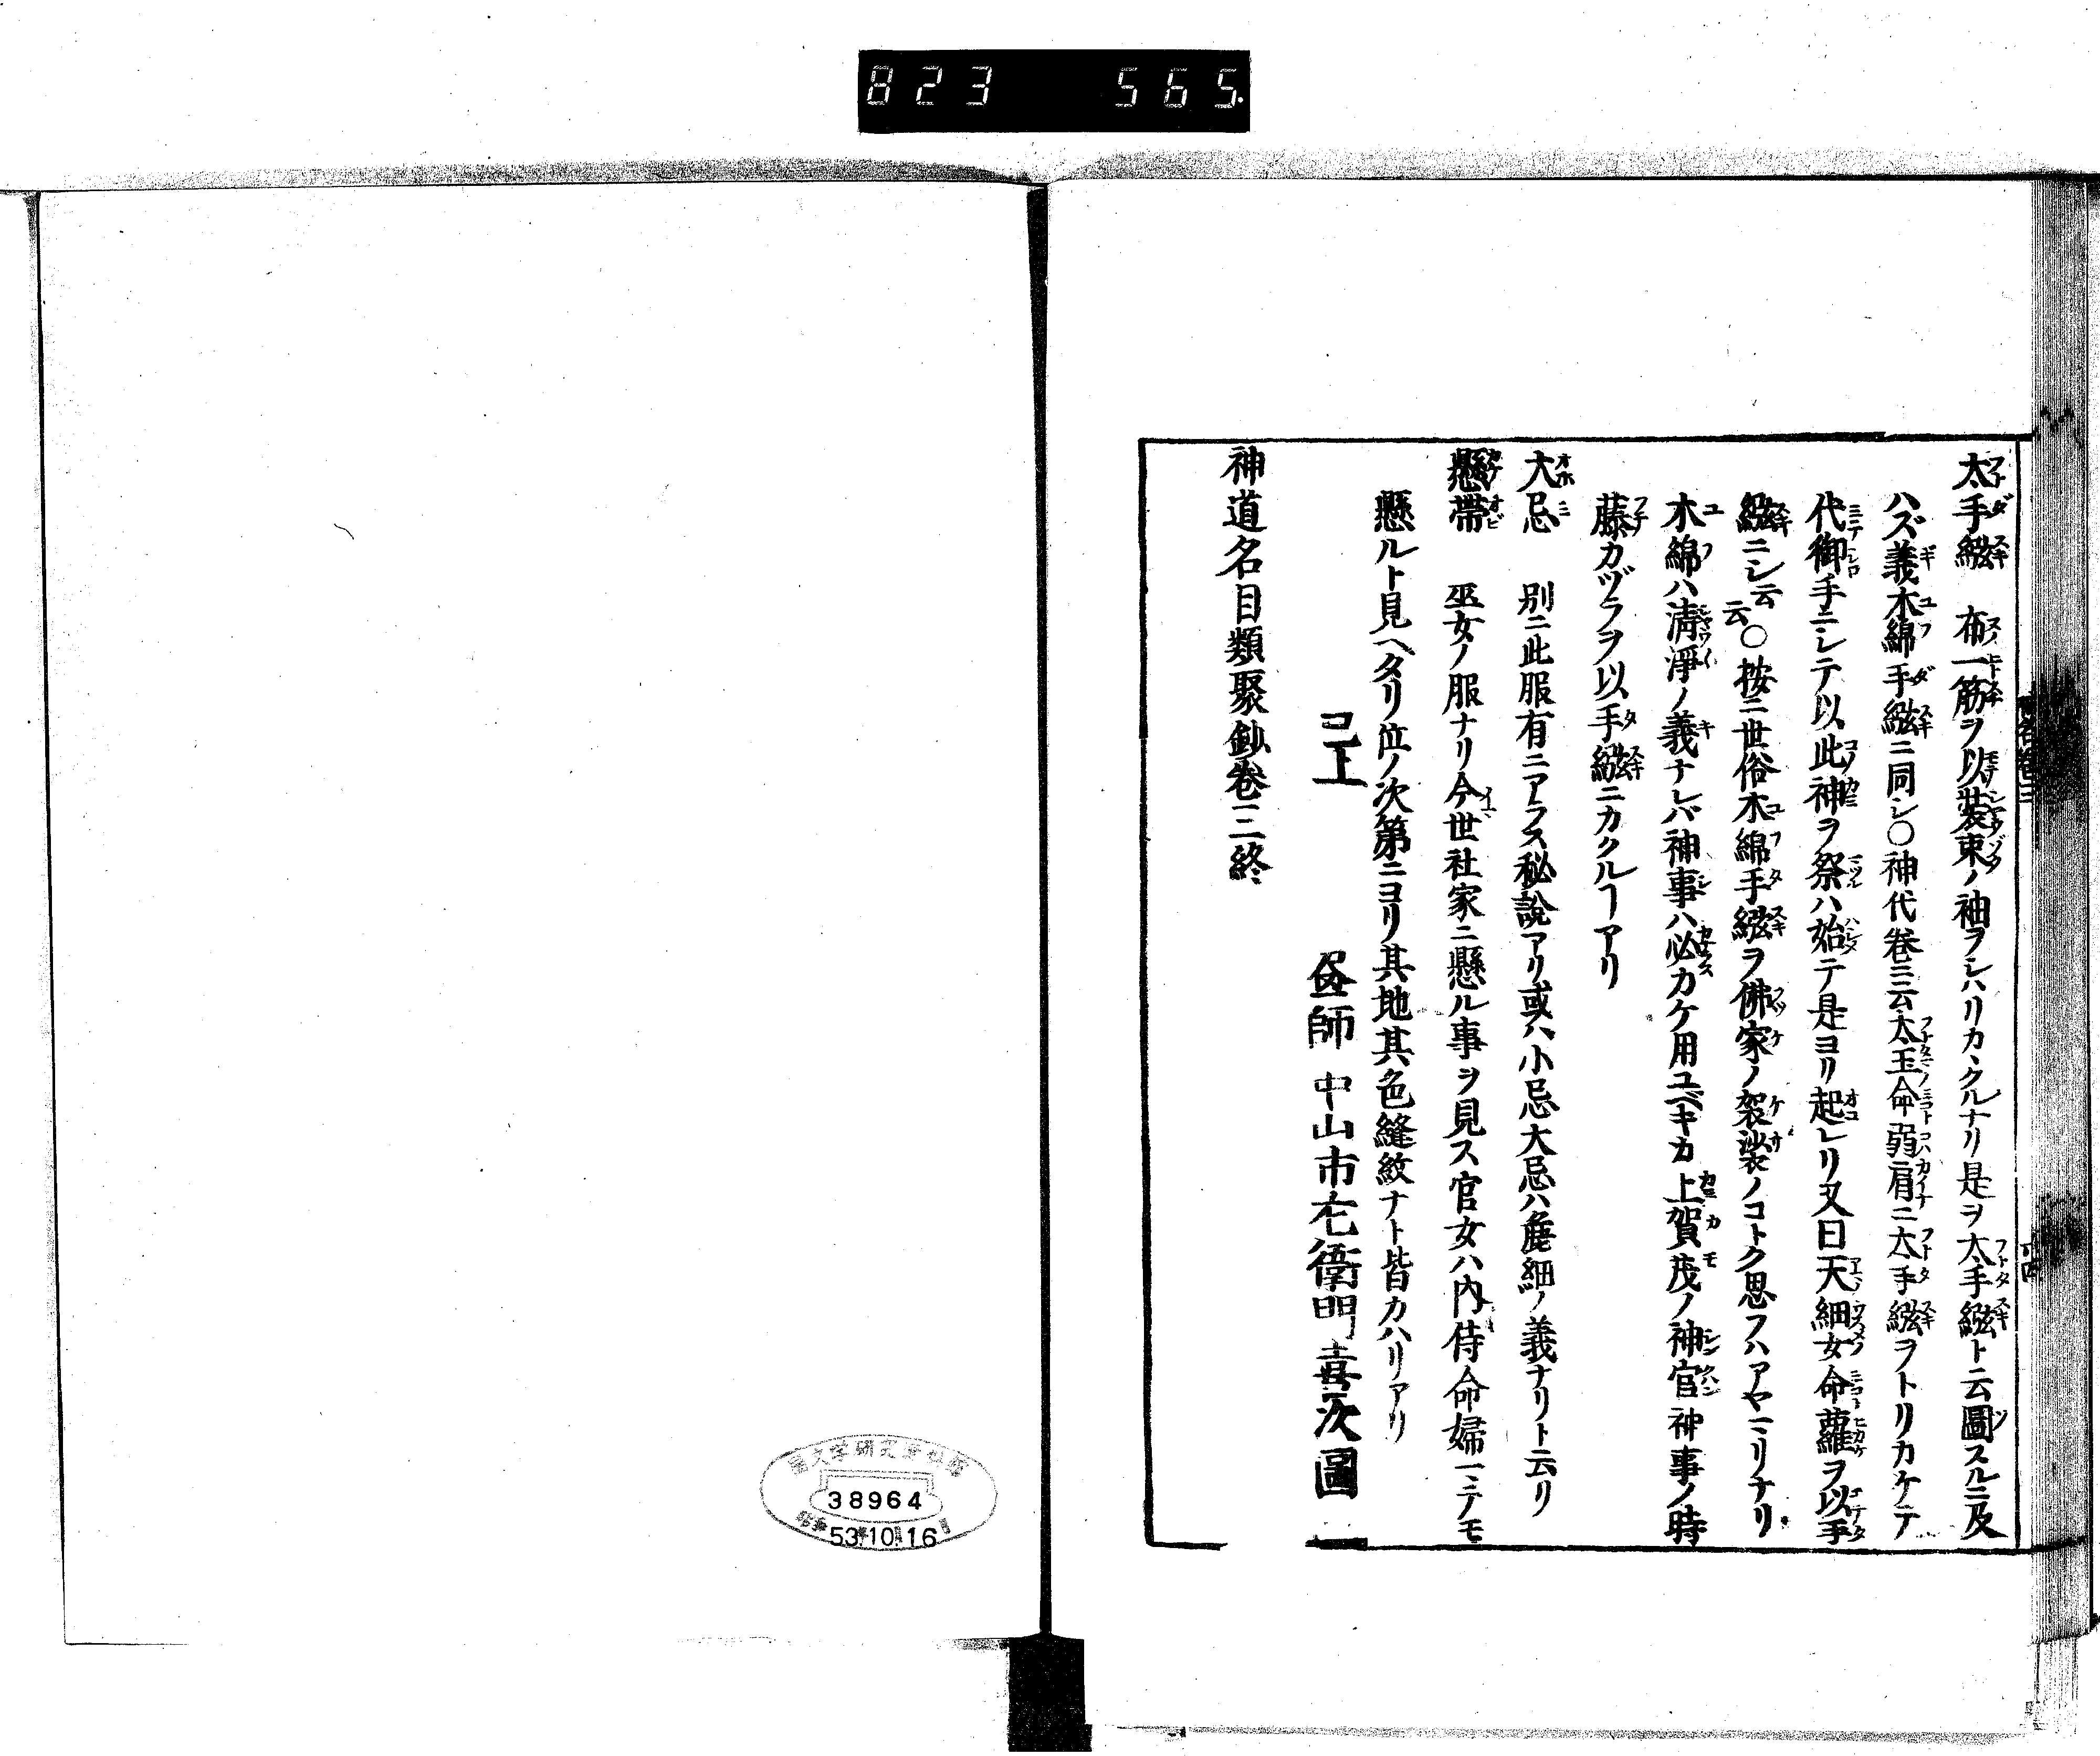 823 565
太手繦 布一筋ヲ以装束ノ袖ヲシハリカヽクルナリ是ヲ太手繦ト云圖スルニ及
ハズ義木綿手繦ニ同シ○神代巻三云太玉命弱肩ニ太手繦ヲトリカケテ
代御手ニシテ以此神ヲ祭ハ始テ是ヨリ起レリ又曰天細女命蘿ヲ以手
繦ニシ云云○按ニ世俗木綿手繦ヲ佛家ノ袈裟ノコトク思フハアヤマリナリ
木綿ハ清浄ノ義ナレバ神事ハ必カケ用ユベキカ上賀茂ノ神官神事ノ時
藤カヅラヲ以手繦ニカクルヿアリ
大忌 別ニ此服有ニアラス秘説アリ或ハ小忌大忌ハ麁細ノ義ナリト云リ
懸帯 巫女ノ服ナリ今世社家ニ懸ル事ヲ見ス官女ハ内侍命婦ニテモ
懸ルト見ヘタリ位ノ次第ニヨリ其地其色縫紋ナト皆カハリアリ
已上
画師 中山市右衛門喜次圖
神道名目類聚鈔巻三終
38964
53.10.16